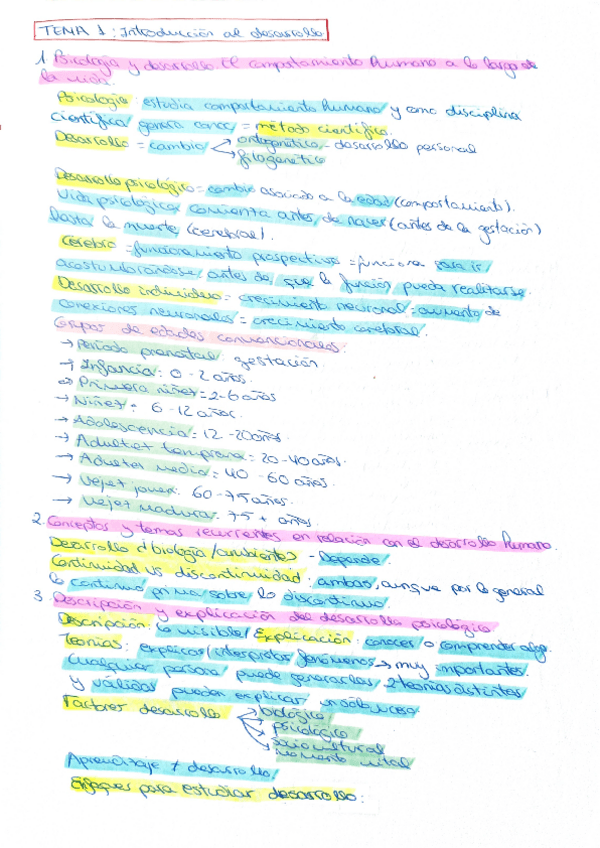 TEMA 1: Introducción al desarrollo
1. Psicología y desarrollo. El comportamiento humano a lo largo de
la vida.
Psicología: estudia comportamiento humano y como disciplina
científica genera conoc = método científico.
Desarrollo = cambio → ontogenético - desarrollo personal
→ filogenético
Desarrollo psicológico = cambio asociado a la edad (comportamiento).
Vida psicológica comienta antes de nacer (antes de la gestación)
hasta la muerte (cerebral).
Cerebro = funcionamiento prospectivo = funciona para ir
acostumbrándose antes de que la función pueda realitarse.
Desarrollo individuo = crecimiento neuronal = aumento de
conexiones neuronales = crecimiento cerebral.
Grupos de edades convencionales:
→ Período prenatal: gestación
→ Infancia: 0-2 años.
→ Primera niñet = 2-6 años
→ Niñet: 6-12 años.
→ Adolescencia = 12-20 años.
→ Adultet temprana = 20-40 años.
→ Adultet media = 40-60 años.
→ Vejet joven: 60-75 años.
→ Vejet madura: 75 + años.
2. Conceptos y temas recurrentes en relación con el desarrollo humano.
Desarrollo (biología/ambiente) - Depende.
Continuidad vs discontinuidad: ambas, aunque por lo general
lo continuo prima sobre lo discontinuo.
3. Descripción y explicación del desarrollo psicológico
Descripción: lo visible/ Explicación: conocer o comprender algo.
Teorías: explicar/interpretar fenómenos → muy importantes.
Cualquier persona puede generarlas, 2 teorías distintas
y válidas pueden explicar un sólo caso
Factores desarrollo → biológico
→ psicológico
→ sociocultural
→ momento vital
Aprendizaje ≠ desarrollo
Enfoques para estudiar desarrollo: